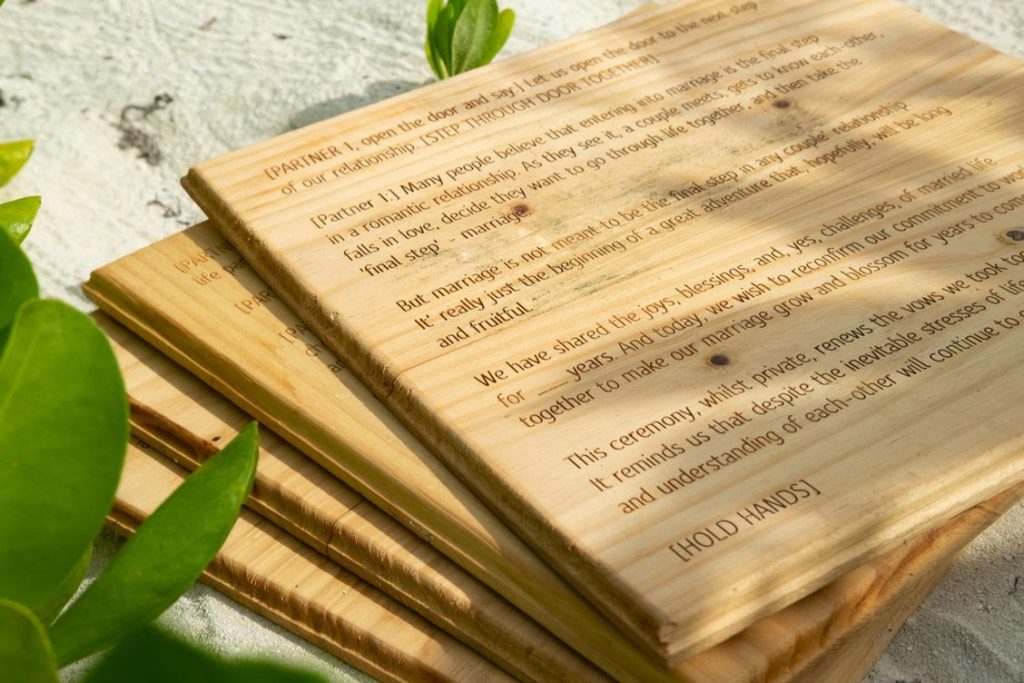 [PARTNER 1, open the door and say:] Let us open the door to the next step
of our relationship. [STEP THROUGH DOOR TOGETHER]
[Partner 1:] Many people believe that entering into marriage is the final step
in a romantic relationship. As they see it, a couple meets, gets to know each-other,
falls in love, decide they want to go through life together, and then take the
'final step' - marriage.
But marriage is not meant to be the final step in any couples' relationship
It really just the beginning of a great adventure that, hopefully, will be long
and fruitful.
We have shared the joys, blessings, and, yes, challenges, of married life
for ___ years. And today, we wish to reconfirm our commitment to
together to make our marriage grow and blossom for years to
This ceremony, whilst private, renews the vows we took
It reminds us that despite the inevitable stresses of
and understanding of each-other will continue to
[HOLD HANDS]
[PAR
life
[PAR
[PA